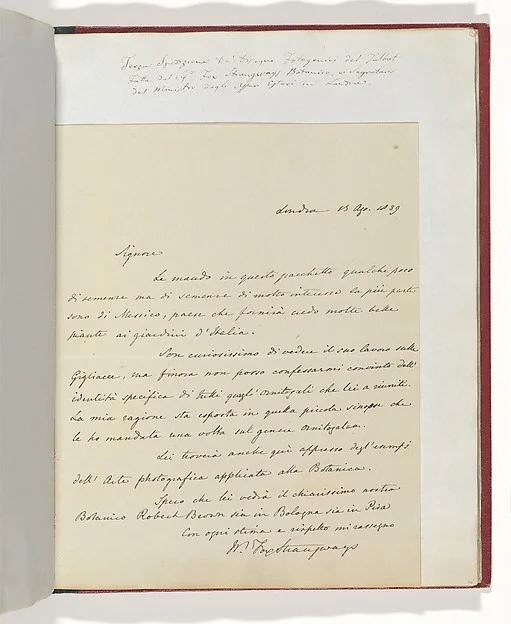 Terza Spedizione de' Disegni Fotogenici del Talbot
fatta dal Sigr. Fox Strangways Botanico, e Segretario
del Ministro degli Affari Esteri in Londra.
Londra 13 Ago. 1839
Signore
Le mando in questo pacchetto qualche poco
di semenze ma di semenze di molto interesse la più parte
sono di Messico, paese che fornirà credo molte belle
piante ai giardini d'Italia.
Son curiosissimo di vedere il suo lavoro sulle
Gigliacee, ma finora non posso confessarmi convinto dell'
identità specifica di tutti quegl' Ornitogali che lei a riunite.
La mia ragione sta esposta in quella piccola sinopse che
le ho mandata una volta sul genere Ornitogalea.
Lei troverà anche quì appresso degl'esempj
dell' Arte photografica applicata alla Botanica.
Spero che lei vedrà il chiarissimo nostro
Botanico Robert Brown sia in Bologna sia in Pisa
Con ogni stima e rispetto mi rassegno
Wm. Fox Strangways